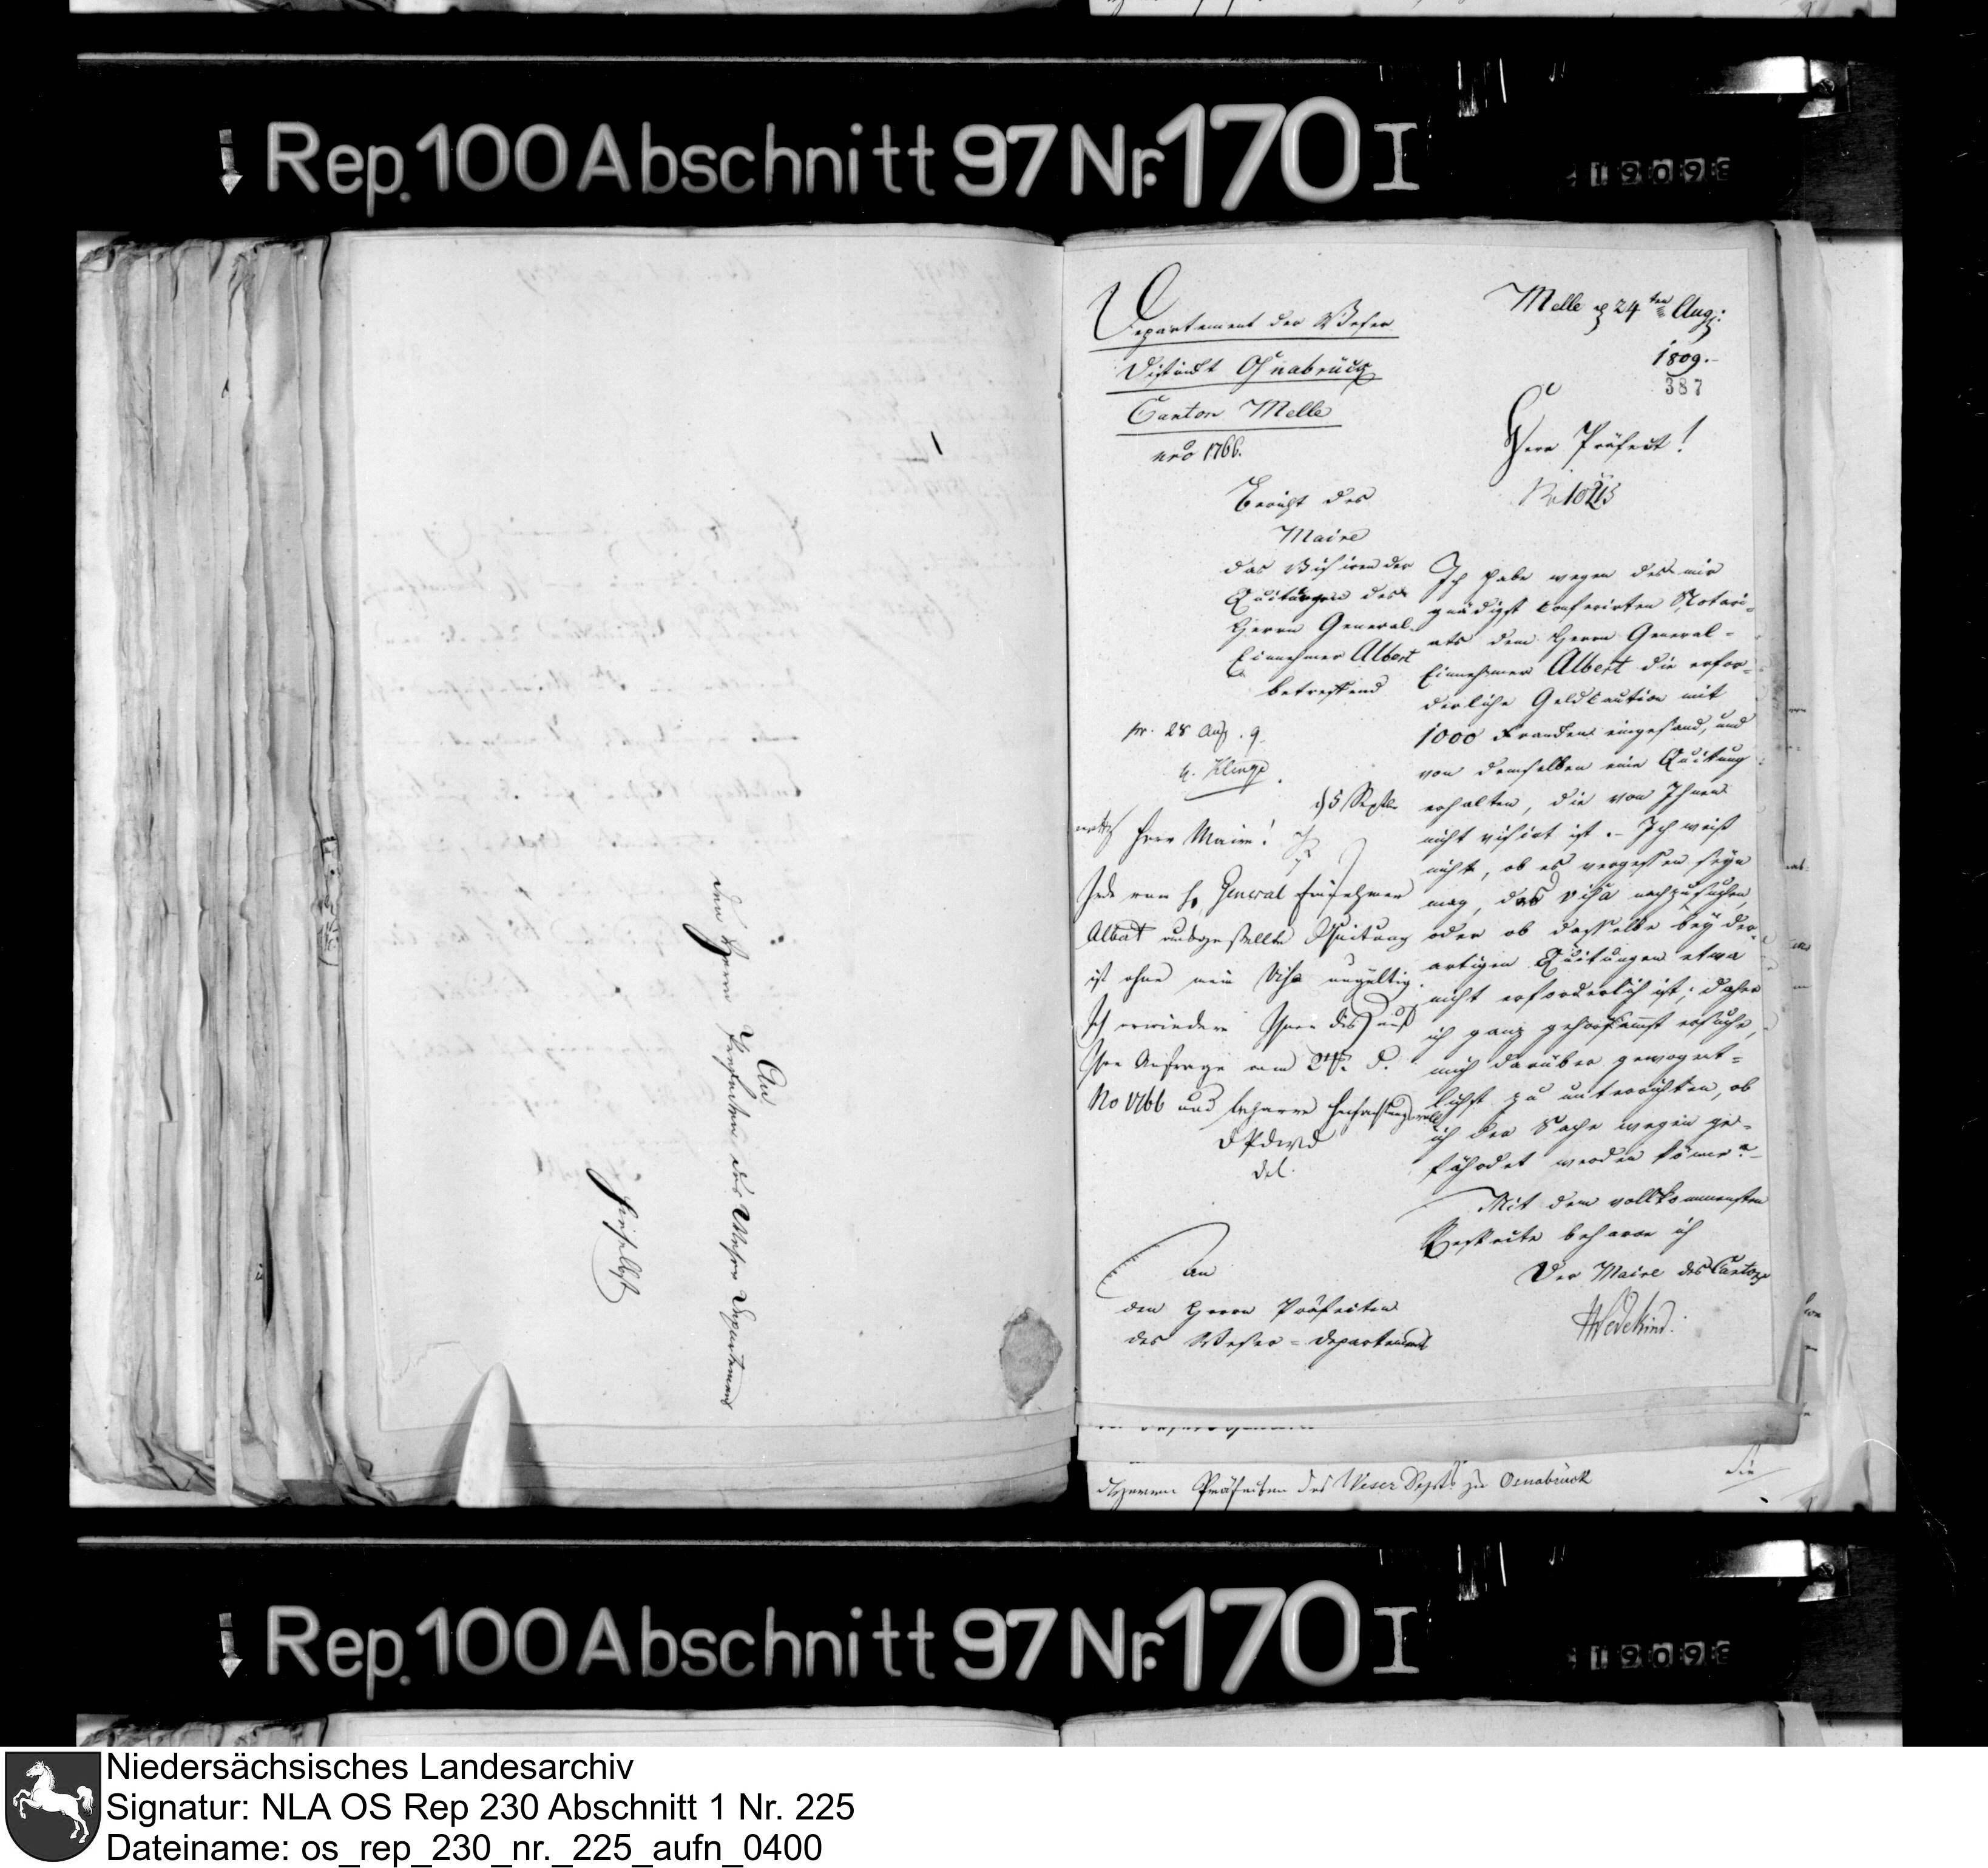 Rep. 100 Abschnitt 97 Nr. 170 I
19093
An
den Herrn Praefecten des Weser Departements
hieselbst
Departement der Weser
District Osnabrück
Canton Melle
nro 1766.
Melle d 24ten Aug:
1809.
387
Herr Präfect!
Bericht des
Maire
das Visiren der
Quitungen des
Herrn General-
Einnehmer Albert
betreffend
pr. 28 Aug. 9
Ich habe wegen des mir
gnädigst conferirten Notari-
ats dem Herrn General-
Einnehmer Albert die erfor-
derliche Geldcaution mit
1000 Franken eingesand, und
von demselben eine Quitung
erhalten, die von Ihnen
nicht visirt ist. – Ich weiß
nicht, ob es vergessen seyn
mag, das Visa nachzusuchen,
oder ob dasselbe bey der-
artigen Quitungen etwa
nicht erforderlich ist; daher
ich ganz gehorsamst ersuche,
mich darüber gewogent-
lichst zu unterrichten, ob
ich der Sache wegen ge-
fährdet werden könne? –
Mit dem vollkommensten
Respecte beharre ich
Der Maire des Cantons
Wedekind.
d 5 Septb.
Herr Maire!
Jede vom H. General Einnehmer
Albert ausgestellte Quitung
ist ohne mein Visa ungültig.
Ich erwiedere Ihnen dis auf
Ihre Anfrage vom 24. v.
No 1766 und beharre hochachtungsvoll
D P d W D
An
den Herrn Präfecten
des Weser-Departements
Herrn Präfecten des Weser Depts. zu Osnabrück
die
Rep. 100 Abschnitt 97 Nr. 170 I
19093
Niedersächsisches Landesarchiv
Signatur: NLA OS Rep 230 Abschnitt 1 Nr. 225
Dateiname: os_rep_230_nr._225_aufn_0400